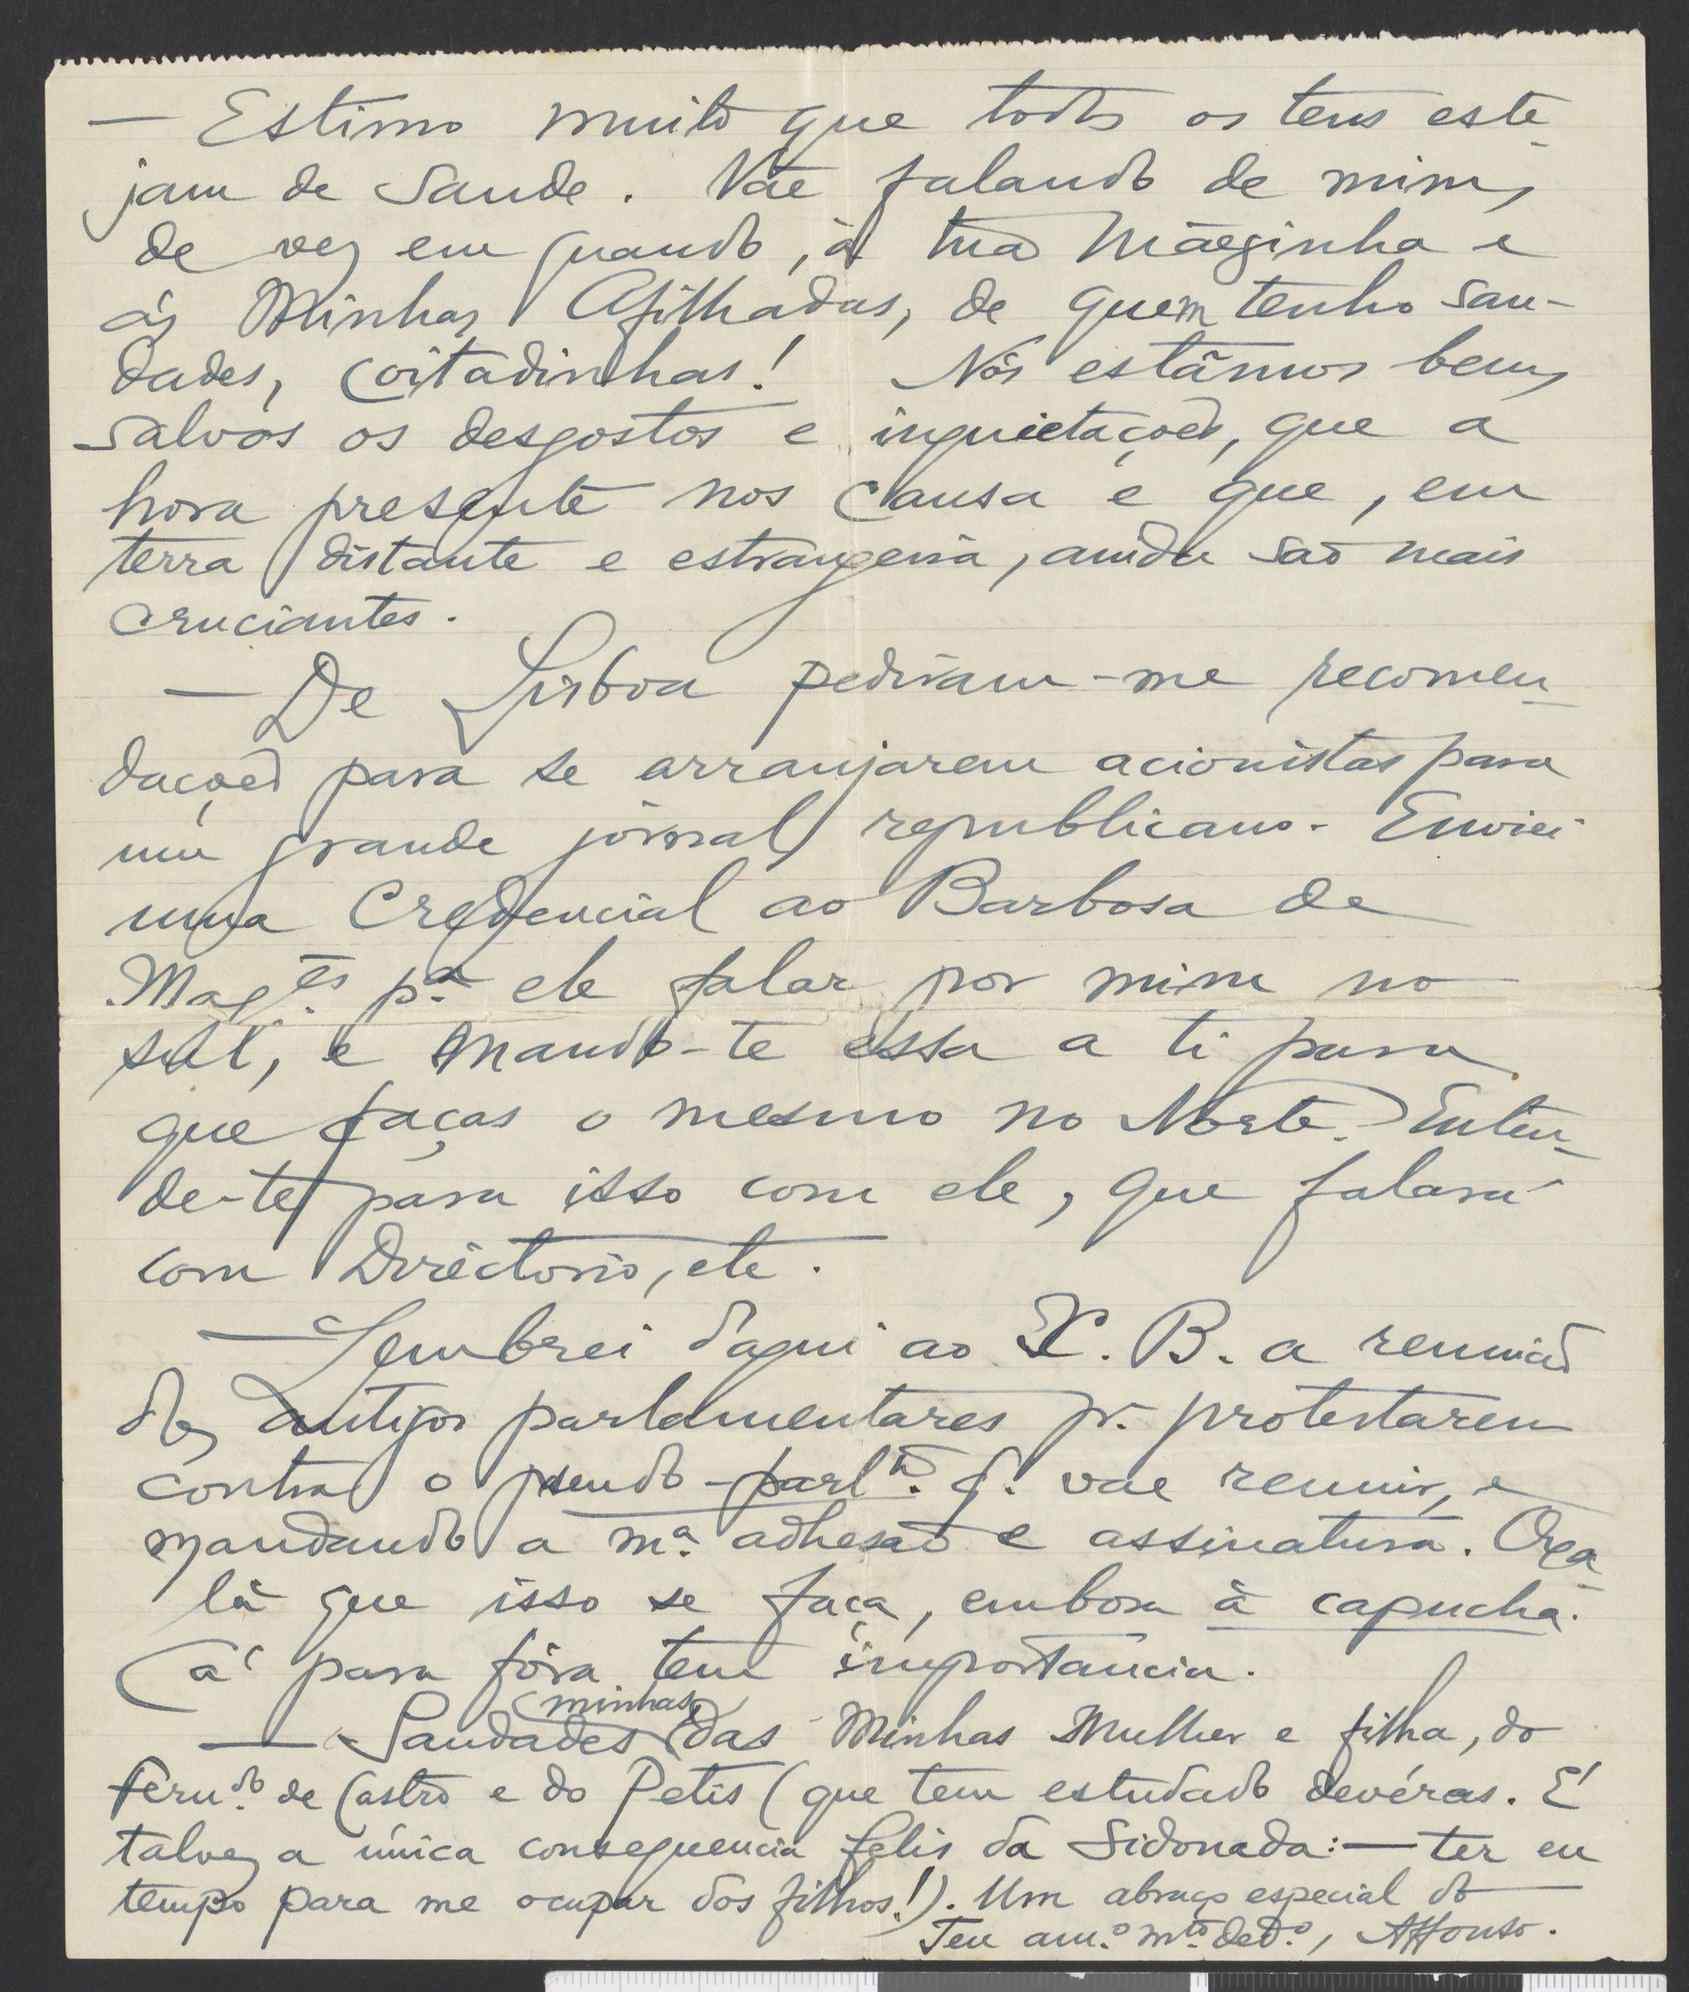 — Estimo muito que todos os teus este-
jam de saude. Vae falando de mim,
de vez em quando, á tua Mãesinha e
ás Minhas Afilhadas, de quem tenho sau-
dades, coitadinhas! Nós estâmos bem,
salvos os desgostos e inquietações, que a
hora presente nos causa e que, em
terra distante e estrangeira, ainda são mais
cruciantes.
— De Lisboa pediram-me recomen-
dações para se arranjarem acionistas para
um grande jornal republicano. Enviei
uma Credencial ao Barbosa de
Mag.es p.a ele falar por mim no
sul, e mando-te essa a ti para
que faças o mesmo no Norte. Enten-
de-te para isso com ele, que falará
com Directorio, etc.
— Lembrei d'aqui ao X. B. a reunião
dos antigos parlamentares pr. protestarem
contra o pseudo-parl.to q. vae reunir, e
mandando a m.a adhesão e assinatura. Oxa-
lá que isso se faça, embora à capucha.
Cá para fóra tem importancia.
minhas,
— Saudades das Minhas Mulher e filha, do
Fern.do de Castro e do Petis (que tem estudado devéras. É
talvez a única consequencia felis da Sidonada: — ter eu
tempo para me ocupar dos filhos!). Um abraço especial do
Teu am.o m.to ded.o, Affonso.